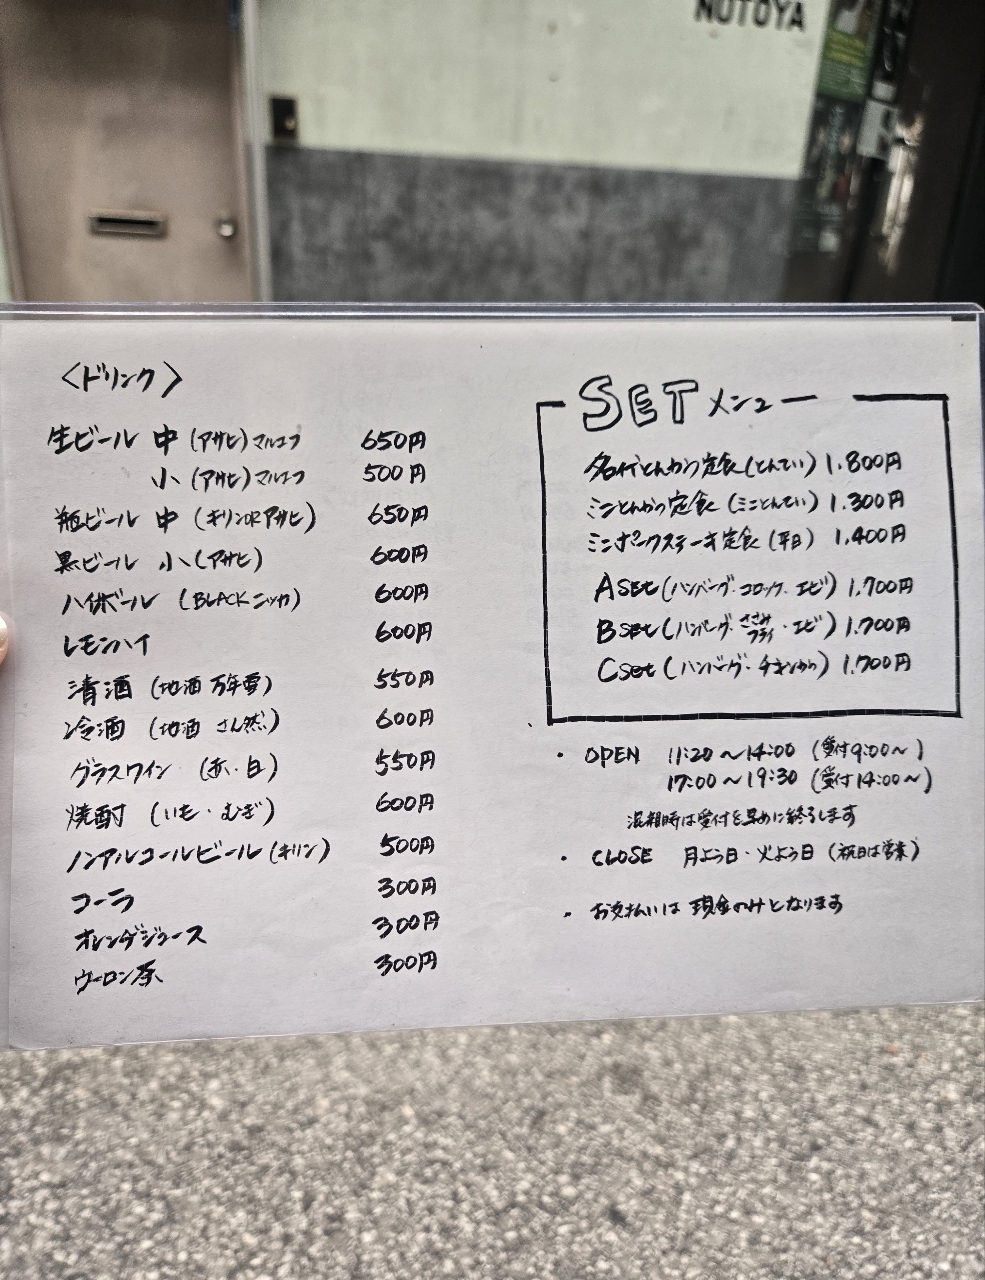 NUTOYA
〈ドリンク〉
生ビール 中 (アサヒ)マルエフ 650円
小 (アサヒ)マルエフ 500円
瓶ビール 中 (キリンORアサヒ) 650円
黒ビール 小(アサヒ) 600円
ハイボール (BLACKニッカ) 600円
レモンハイ 600円
清酒 (地酒 万年雪) 550円
冷酒 (地酒 さん然) 600円
グラスワイン (赤・白) 550円
焼酎 (いも・むぎ) 600円
ノンアルコールビール(キリン) 500円
コーラ 300円
オレンヂジュース 300円
ウーロン茶 300円
SET メニュー
名代とんかつ定食(とんてい) 1.800円
ミニとんかつ定食 (ミニとんてい) 1.300円
ミニポークステーキ定食(平日) 1.400円
Aset(ハンバーグ・コロッケ・エビ) 1.700円
Bset(ハンバーグ・ささみフライ・エビ) 1.700円
Cset(ハンバーグ・チキンから) 1.700円
・OPEN 11:20〜14:00 (受付9:00〜)
17:00〜19:30 (受付14:00〜)
混雑時は受付を早めに終了します
・CLOSE 月よう日・火よう日(祝日は営業)
・お支払いは現金のみとなります